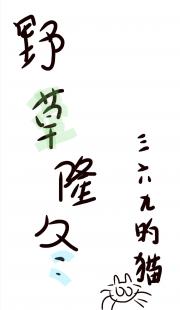 野草隆冬
三六九的猫